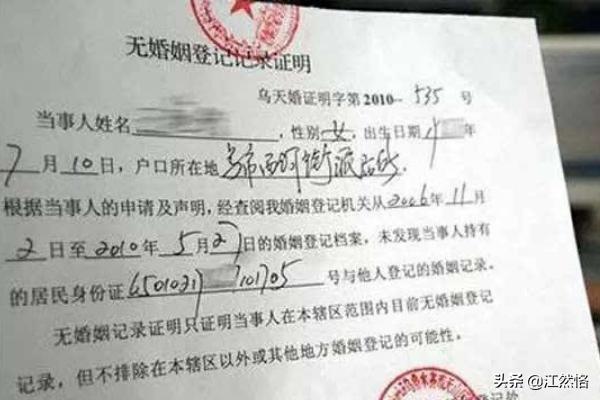 无婚姻登记记录证明
乌天婚证明字第2010-535号
当事人姓名，性别女，出生日期年
7月10日，户口所在地
根据当事人的申请及声明，经查阅我婚姻登记机关从2006年11月
2日至2010年5月27日的婚姻登记档案，未发现当事人持有
的居民身份证6501031 101705号与他人登记的婚姻记录。
无婚姻记录证明只证明当事人在本辖区范围内目前无婚姻登记
记录，但不排除在本辖区以外或其他地方婚姻登记的可能性。
登记处
头条 @江然恪